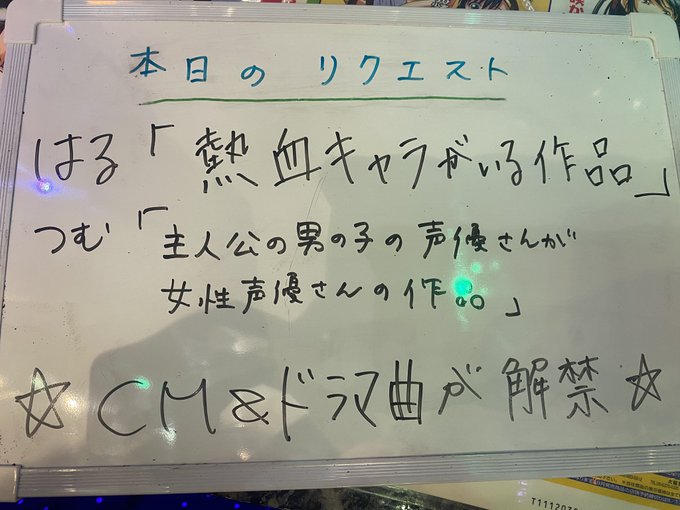 本日の リクエスト
はる「熱血キャラがいる作品」
つむ「主人公の男の子の声優さんが
女性声優さんの作品」
☆CM&ドラマ曲が解禁☆